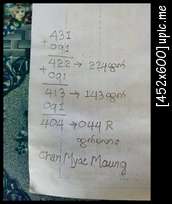 431
+ 091
422 → 224
+ 091
413 → 143
091
404 → 044 R
Chan Myae Maung
[452x600] uplc.me